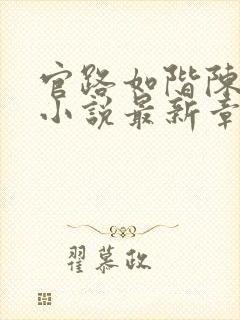 官路如階陳
小說最新章
翟慕政